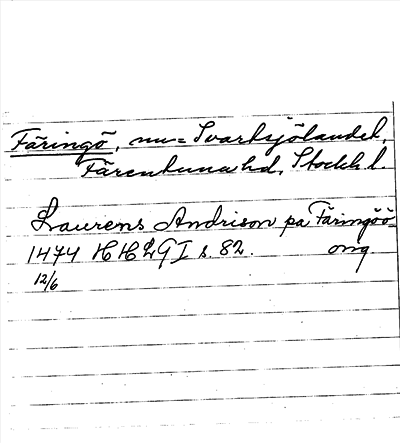 Färingö, nu = Svartsjölandet,
Färentuna hd, Stockh. l.
Laurens Andrison pa Färingöö
1474 HHLG I s. 82. omg.
12/6